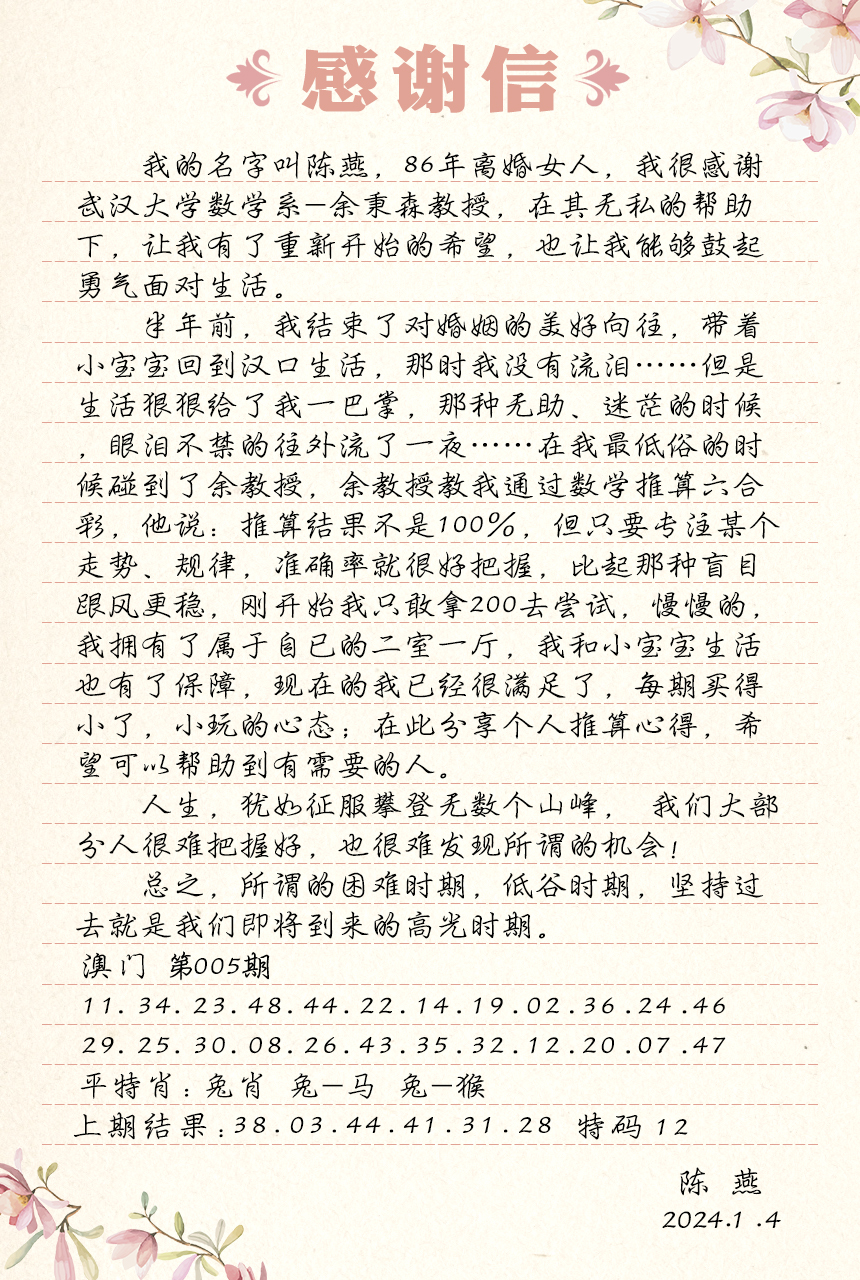 感谢信
我的名字叫陈燕，86年离婚女人，我很感谢
武汉大学数学系—余秉森教授，在其无私的帮助
下，让我有了重新开始的希望，也让我能够鼓起
勇气面对生活。
半年前，我结束了对婚姻的美好向往，带着
小宝宝回到汉口生活，那时我没有流泪……但是
生活狠狠给了我一巴掌，那种无助、迷茫的时候
，眼泪不禁的往外流了一夜……在我最低俗的时
候碰到了余教授，余教授教我通过数学推算六合
彩，他说：推算结果不是100%，但只要专注某个
走势、规律，准确率就很好把握，比起那种盲目
跟风更稳，刚开始我只敢拿200去尝试，慢慢的，
我拥有了属于自已的二室一厅，我和小宝宝生活
也有了保障，现在的我已经很满足了，每期买得
小了，小玩的心态；在此分享个人推算心得，希
望可以帮助到有需要的人。
人生，犹如征服攀登无数个山峰， 我们大部
分人很难把握好，也很难发现所谓的机会！
总之，所谓的困难时期，低谷时期，坚持过
去就是我们即将到来的高光时期。
澳门 第005期
11.34.23.48.44.22.14.19.02.36.24.46
29.25.30.08.26.43.35.32.12.20.07.47
平特肖：兔肖 兔—马 兔—猴
上期结果：38.03.44.41.31.28 特码 12
陈 燕
2024.1.4